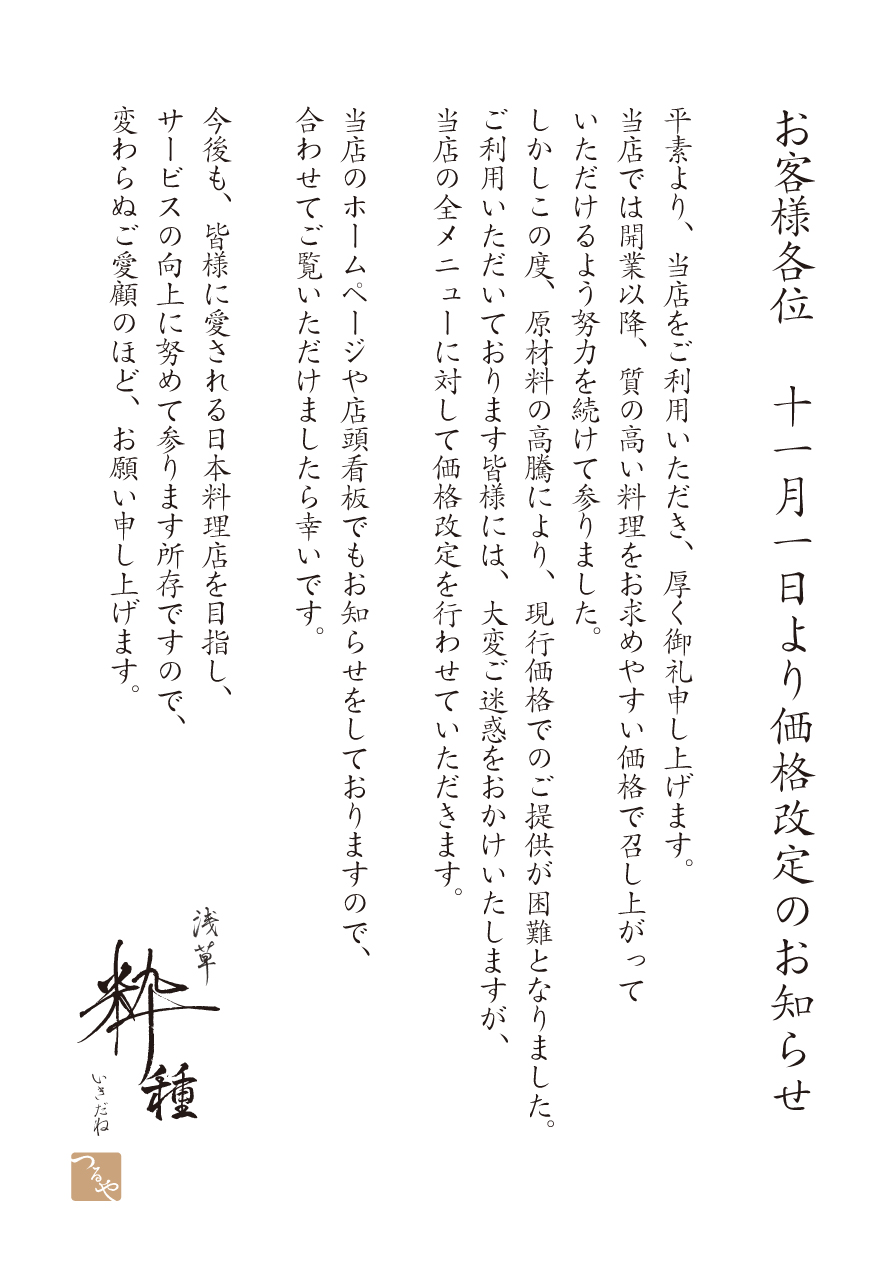 お客様各位　十一月一日より価格改定のお知らせ
平素より、当店をご利用いただき、厚く御礼申し上げます。
当店では開業以降、質の高い料理をお求めやすい価格で召し上がって
いただけるよう努力を続けて参りました。
しかしこの度、原材料の高騰により、現行価格でのご提供が困難となりました。
ご利用いただいております皆様には、大変ご迷惑をおかけいたしますが、
当店の全メニューに対して価格改定を行わせていただきます。
当店のホームページや店頭看板でもお知らせをしておりますので、
合わせてご覧いただけましたら幸いです。
今後も、皆様に愛される日本料理店を目指し、
サービスの向上に努めて参ります所存ですので、
変わらぬご愛顧のほど、お願い申し上げます。
浅草
粋種
いきだね
つるや